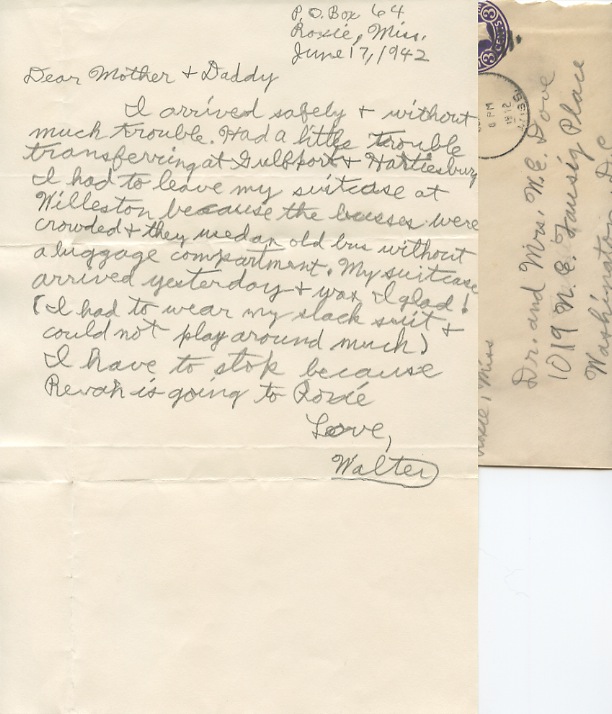 P.O. Box 64
Roxie, Miss.
June 17, 1942
Dear Mother + Daddy
I arrived safely + without
much trouble. Had a little trouble
transferring at Gulfport + Hattiesburg
I had to leave my suitcase at
Williston because the busses were
crowded + they used an old bus without
a luggage compartment. My suitcase
arrived yesterday + was I glad!
(I had to wear my slack suit +
could not play around much)
I have to stop because
Revah is going to Roxie
Love,
Walter
3 CENTS 3
6 PM
1942
MISS
Dr. and Mrs. W.E. Dove
1019 N.E. Place
Washington D.C.
Roxie, Miss